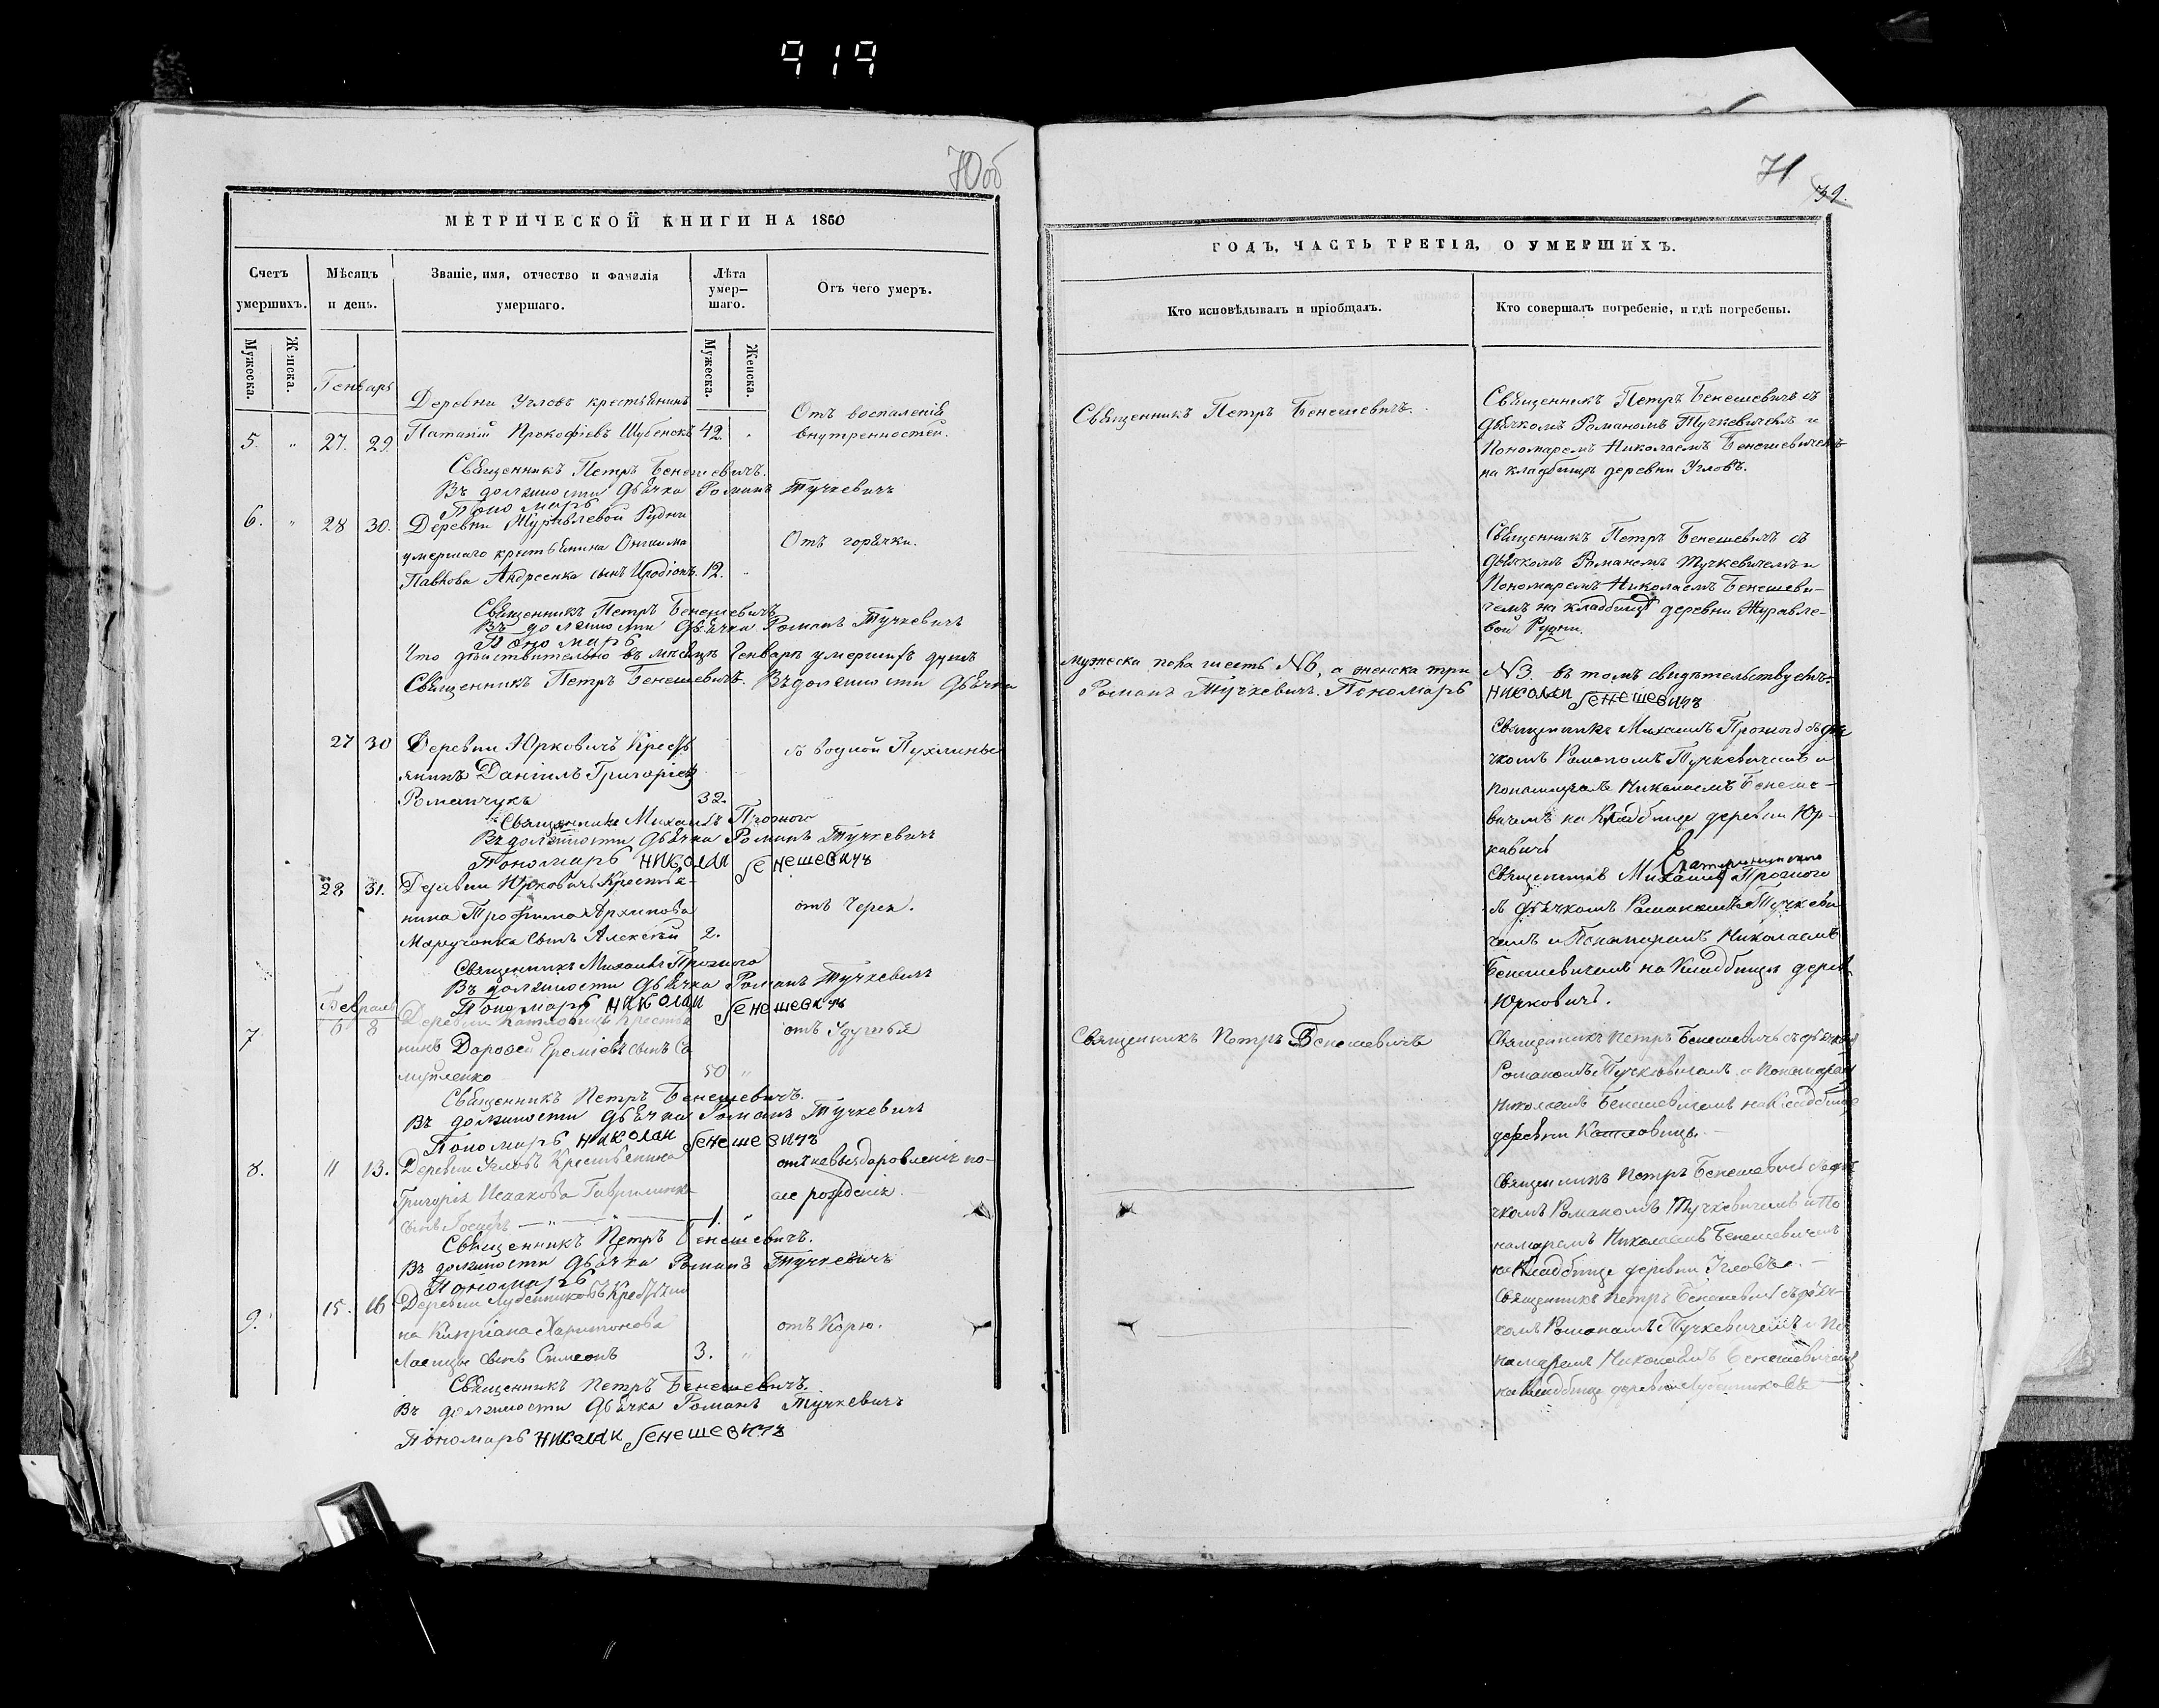 919
70об
МЕТРИЧЕСКОЙ КНИГИ НА 1860
Счетъ умершихъ.
Мѣсяцъ и день.
Званіе, имя, отчество и фамилія умершаго.
Лѣта умер-шаго.
Отъ чего умеръ.
Мужеска.
Женска.
Мужеска.
Женска.
Генварь
Деревни Угловъ крестьянинъ
Отъ воспаленія
5. " 27. 29. Прокофіевъ 42. внутренностей.
Священникъ Петръ Бенешевичъ.
Въ должности дьячка Романъ Тучкевичъ
Пономарь
6. " 28 30. Деревни Журавлевой Рудни
умершаго крестьянина Онисима Отъ горячки.
Павлова Андреенка сынъ Иродіонъ. 12.
Священникъ Петръ Бенешевичъ
Въ должности дьячка Романъ Тучкевичъ
Пономарь
Что дѣйствительно въ мѣсяцѣ Генварѣ умершихъ душъ
Священникъ Петръ Бенешевичъ. Въ должности дьячка
27 30 Деревни Юрковичъ Кресть
янинъ Даніилъ Григоріевъ водной Пухлины
Романчукъ 32.
Священникъ Михаилъ
Въ должности дьячка Романъ Тучкевичъ
Пономарь Николай Бенешевичъ
28 31. Деревни Юрковичъ Крестья-
нина Трофима Архипова отъ Черея.
сынъ Алексѣй 2.
Священникъ Михаилъ
Въ должности дьячка Романъ Тучкевичъ
Февраль Пономарь Николай Бенешевичъ
7. 6 8 Деревни Катловицы Крестья
нинъ Дорофей Ереміевъ сынъ Са отъ Удушья
50 "
Священникъ Петръ Бенешевичъ.
Въ должности дьячка Романъ Тучкевичъ
Пономарь Николай Бенешевичъ
8. 11 13. Деревни Угловъ Крестьянина
Григорія Исакова
сынъ 1.
Священникъ Петръ Бенешевичъ.
Въ должности дьячка Романъ Тучкевичъ
Пономарь
9. 15. 16 Деревни Лубенниковъ Крестьяни
на Кипріана Харитонова отъ Корю.
сынъ Симеонъ 3. "
Священникъ Петръ Бенешевичъ.
Въ должности дьячка Романъ Тучкевичъ
Пономарь Николай Бенешевичъ
71
ГОДЪ, ЧАСТЬ ТРЕТІЯ, О УМЕРШИХЪ.
Кто исповѣдывалъ и пріобщалъ.
Кто совершалъ погребеніе, и гдѣ погребены.
Священникъ Петръ Бенешевичъ.
Священникъ Петръ Бенешевичъ съ
дьячкомъ Романомъ Тучкевичемъ и
Пономаремъ Николаемъ Бенешевичемъ
на кладбищѣ деревни Угловъ.
Священникъ Петръ Бенешевичъ съ
дьячкомъ Романомъ Тучкевичемъ и
Пономаремъ Николаемъ Бенешеви-
чемъ на кладбищѣ деревни Журавле-
вой Рудни.
мужеска пола шесть №6, а женска три №3. въ томъ свидѣтельствуемъ:
Романъ Тучкевичъ. Пономарь Николай Бенешевичъ
Священникъ Михаилъ съ дья
чкомъ Романомъ Тучкевичемъ и
пономаремъ Николаемъ Бенеше-
вичемъ на Кладбище деревни Юр-
кавичъ
Священникъ Михаилъ
съ дьячкомъ Романомъ Тучкеви
чемъ и Пономаремъ Николаемъ
Бенешевичемъ на Кладбищѣ дерев
Юрковичъ.
Священникъ Петръ Бенешевичъ
Священникъ Петръ Бенешевичъ съ дьячкомъ
Романомъ Тучкевичемъ и Пономарем
Николаемъ Бенешевичемъ на Кладбище
деревни Катловицы.
Священникъ Петръ Бенешевичъ съ дья
чкомъ Романомъ Тучкевичемъ и По
номаремъ Николаемъ Бенешевичемъ
на Кладбище деревни Угловъ.
Священникъ Петръ Бенешевичъ съ дьяч-
комъ Романомъ Тучкевичемъ и По
номаремъ Николаемъ Бенешевичемъ
на Кладбище деревни Лубенниковъ